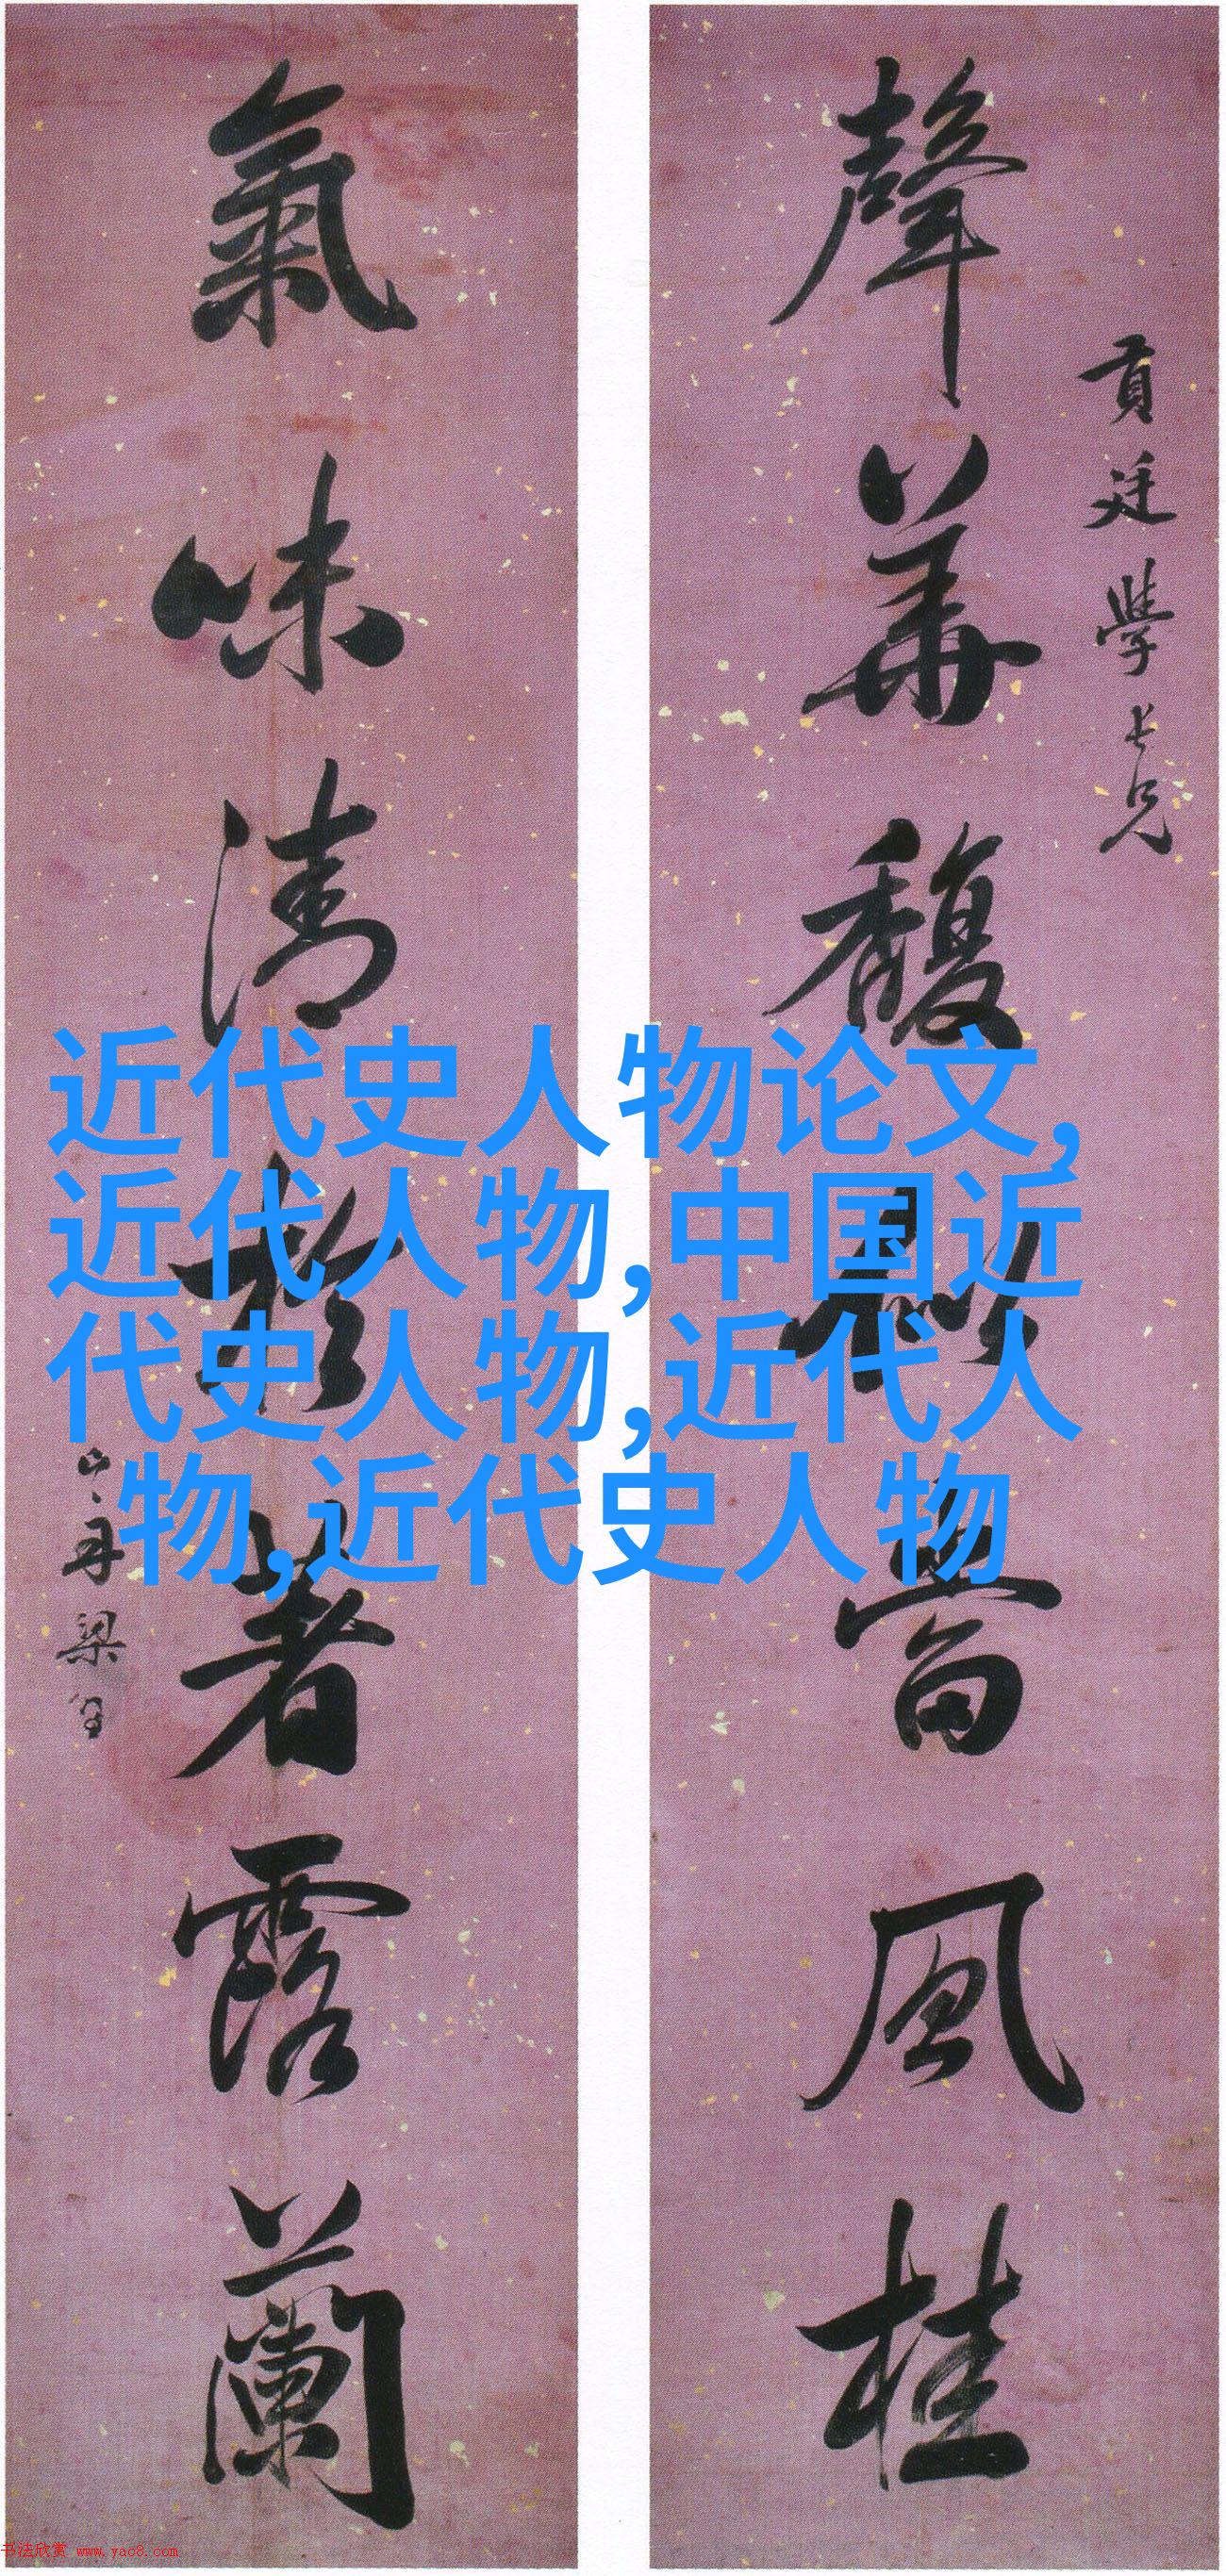 貢廷學長兄
聲華馥於當風桂
氣味清於著露蘭
山舟梁同書
近代史人物论文,
近代人物,中国近
代史人物,近代人
物,近代史人物
书法欣赏 www.yac8.com